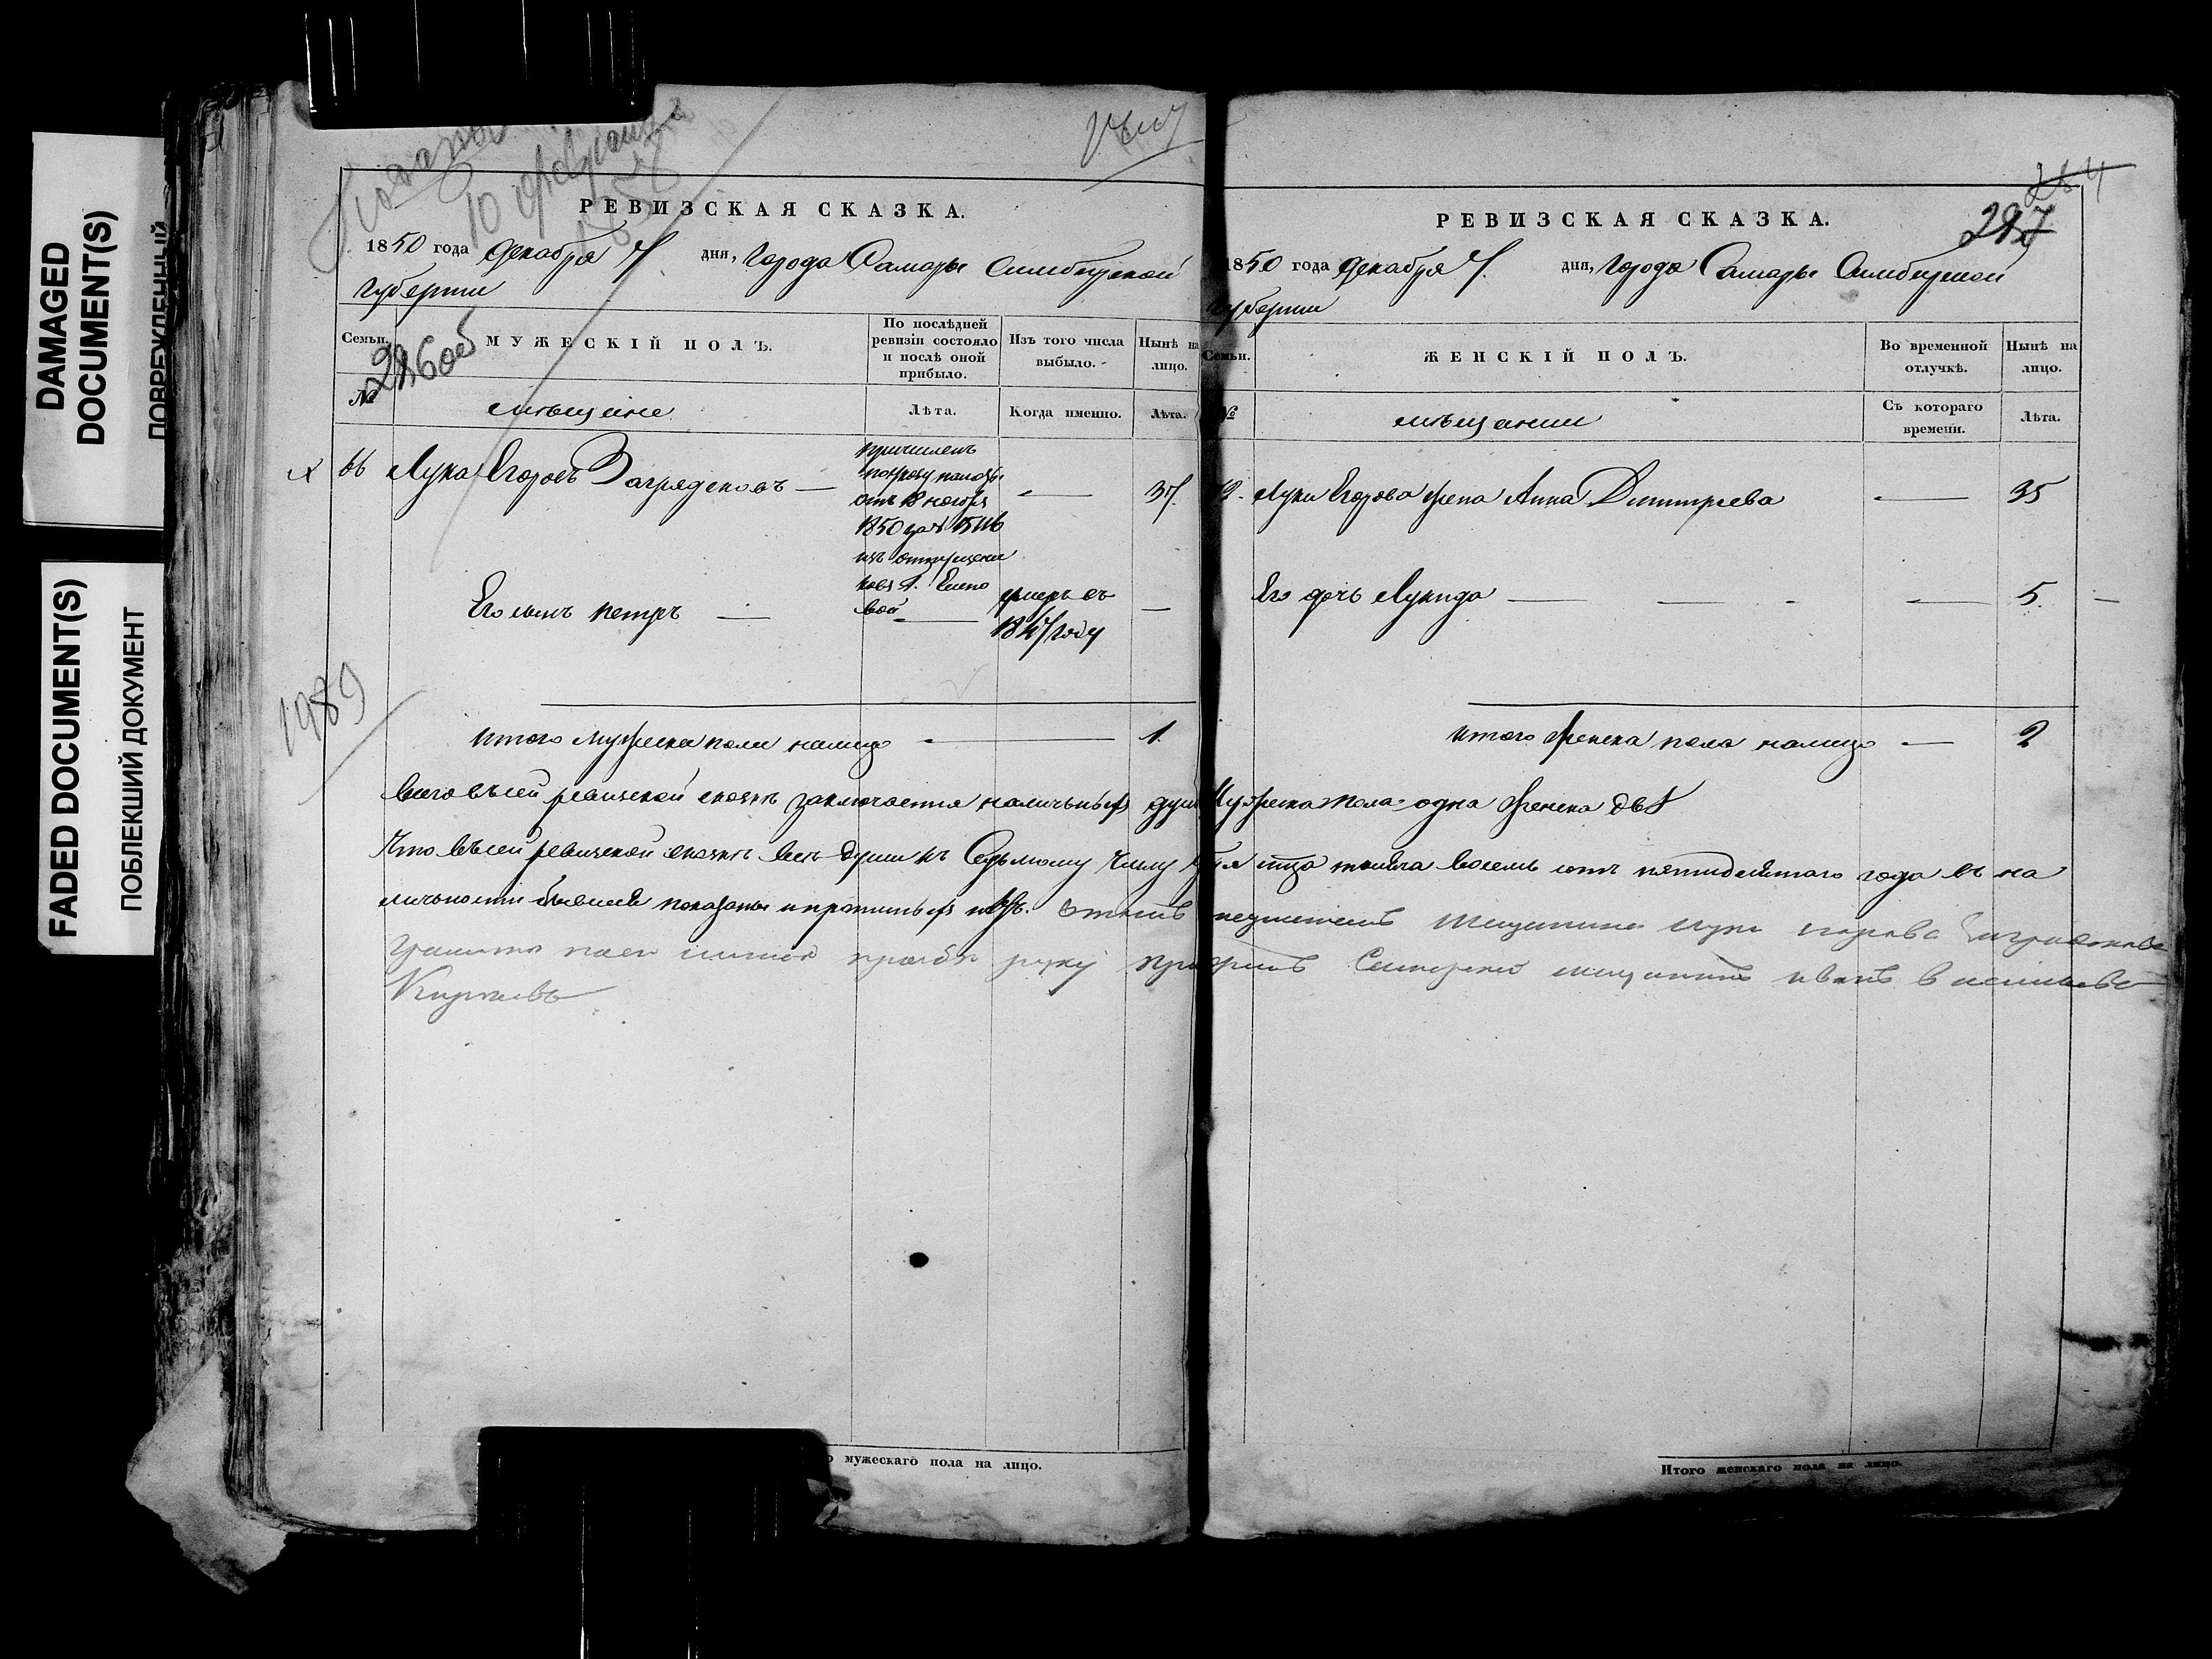 DAMAGED
DOCUMENT(S)
ПОВРЕЖДЕННЫЙ
FADED DOCUMENT(S)
ПОБЛЕКШИЙ ДОКУМЕНТ
Подана
10 февраля
РЕВИЗСКАЯ СКАЗКА.
1850 года декабря 7 дня, города Самары Симбирской
губернии
Семьи.
МУЖЕСКІЙ ПОЛЪ.
По послѣдней
ревизіи состояло
и послѣ оной
прибыло.
Изъ того числа
выбыло.
Нынѣ на
лицо.
№
286об
мѣщане
Лѣта.
Когда именно.
Лѣта.
Лука Егоровъ Загряденовъ —
причисленъ
по указу палаты
отъ 18 ноября
1850 года
—
37.
Его сынъ Петръ —
—
умеръ въ
1847 году
—
1989
Итого мужеска пола налицо — 1.
РЕВИЗСКАЯ СКАЗКА.
287
1850 года декабря 7. дня, города Самары Симбирской
губернии
Семьи.
ЖЕНСКІЙ ПОЛЪ.
Во временной
отлучкѣ.
Нынѣ на
лицо.
№
мѣщанки
Съ котораго
времени.
Лѣта.
Луки Егорова жена Анна Димитриева — 35
Его дочь Лукида — — - — 5. —
Итого женска пола налицо — 2
Всего въ сей ревизской сказкѣ заключается наличныхъ душъ Мужеска пола одна женска двѣ
Что въ сей ревизской сказкѣ всѣ души къ Седьмому числу сего мѣсяца тысяча восемь сотъ пятидесятаго года въ на
личности бывшия показаны и прописныхъ нѣтъ. Мещанина Луки Егорова Загряденова
руку приложилъ Самарской мещанинъ Иванъ Васильевъ
Киреевъ
мужескаго пола на лицо.
Итого женскаго пола на лицо.